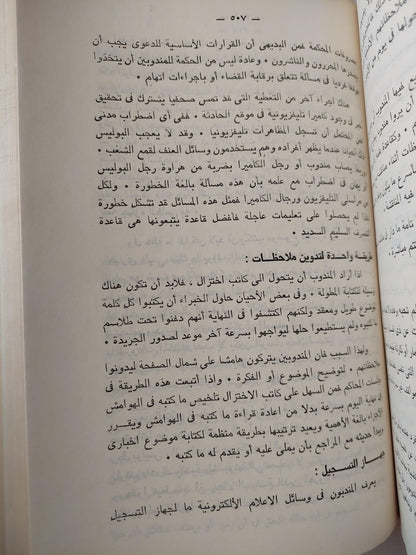 — ٥٠٧ —
مصروفات المحكمة فمن البديهى أن القرارات الأساسية للدعوى يجب أن
يصدرها المحررون والناشرون • وعادة ليس من الحكمة للمندوبين أن يتخذوا
موقفا فرديا فى مسألة تتعلق برقابة القضاء أو باجراءات اتهام •
هناك اجراء آخر من التغطية التى قد تمس صحفيا يشترك فى تحقيق
وجود كاميرا تليفزيونية فى موقع الحادثة • ففى أى اضطراب مدنى
من المحتمل أن تسجل المظاهرات تليفزيونيا • وقد لا يعجب البوليس
ذلك أحيانا عندما يظهر أفراده وهم يستخدمون وسائل العنف لقمع الشغب •
وعندما يصاب مندوب أو رجل الكاميرا بضربة من هراوة رجل البوليس
فى اضطراب مع علمه بأن هذه مسألة بالغة الخطورة • ولكل
من مراسلى التليفزيون ورجال الكاميرا فمثل هذه المسائل قد تشكل خطورة
اذا لم يحصلوا على تعليمات عاجلة فأفضل قاعدة يتبعونها هى قاعدة
التصرف السليم السديد •
طريقة واحدة لتدوين ملاحظات :
اذا أراد المندوب أن يتحول الى كاتب اختزال ، فلابد أن تكون هناك
وسيلة للكتابة المطولة • وفى بعض الأحيان حاول الخبراء أن يكتبوا كل كلمة
موضوع طويل ومعقد ولكنهم اكتشفوا فى النهاية أنهم دفنوا تحت طلاسم
ما كتبوه ولم يستطيعوا حلها ليواجهوا بسرعة آخر موعد لصدور الجريدة •
ولهذا السبب فان المندوبين يتركون هامشا على شمال الصفحة ليدونوا
ملاحظاتهم ، لتوضيح الموضوع أو الفكرة • واذا اتبعت هذه الطريقة فى
جلسات المحاكم فمن السهل على كاتب الاختزال تلخيص ما كتبه فى الهوامش
فى نهاية اليوم بسرعة بدلا من اعادة قراءة ما كتبه فى الهوامش ويقرر
الأجزاء بالغة الأهمية ويعيد ترتيبها بطريقة منظمة لكتابة موضوع اخبارى
ويبدأ حديثه مع المراجع بأن يملى عليه أو يقدم له ما كتبه •
جهاز التسجيل :
يعرف المندوبون فى وسائل الاعلام الألكترونية ما لجهاز التسجيل